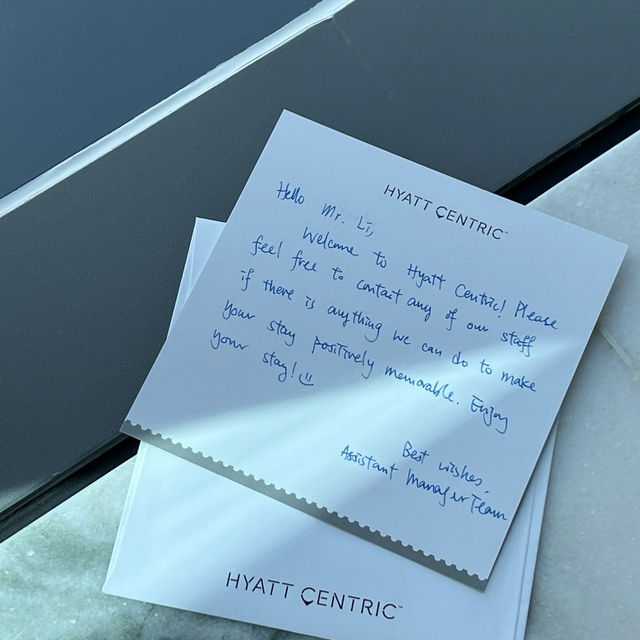 HYATT CENTRIC™
Hello Mr. Li,
Welcome to Hyatt Centric! Please
feel free to contact any of our staff
if there is anything we can do to make
your stay positively memorable. Enjoy
your stay!
Best wishes,
Assistant Manager Team
HYATT CENTRIC™